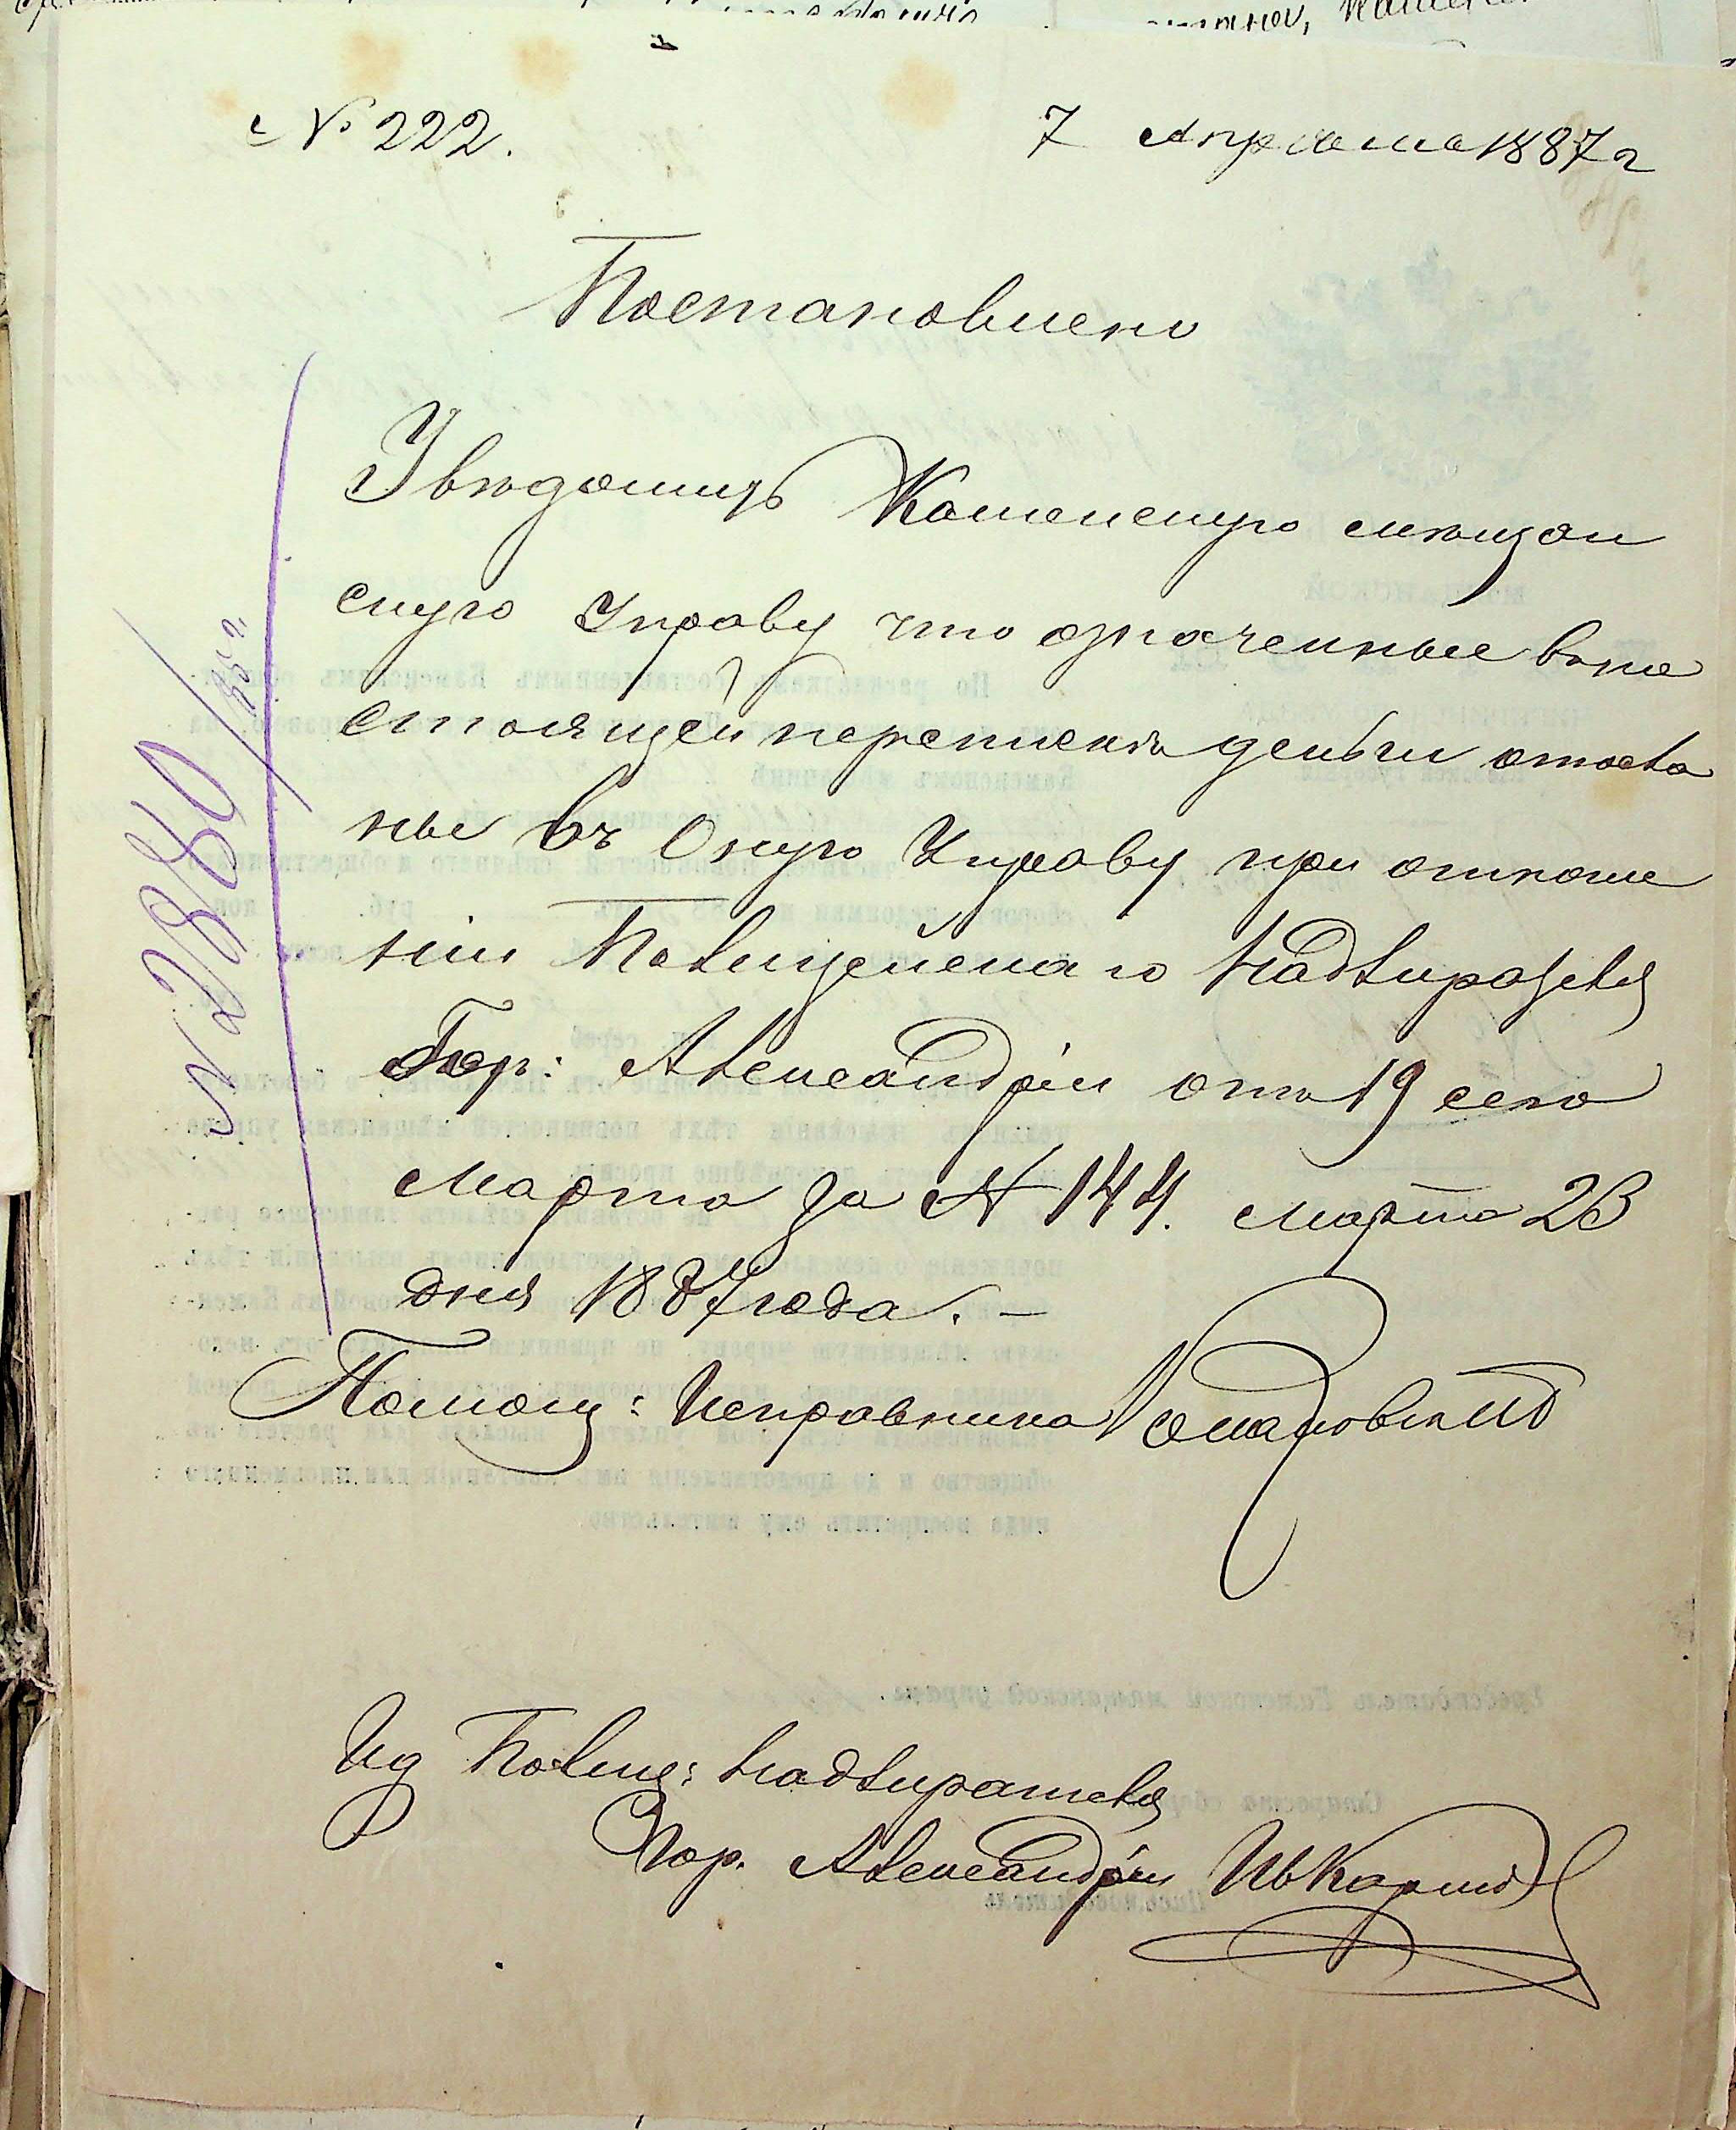 № 222.
7 Апрѣля 1887 г
Постановлено
Увѣдомить Каменскую мѣщан
скую Управу что означенные въ на
стоящей перепискѣ деньги отосла
ны въ Оную Управу при отноше
ніи Полицейскаго Надзирателя
Гор: Александріи отъ 19 сего
Марта за № 144. Марта 23
дня 1887 года. —
Помощ: Исправника
И д Полиц: Надзирателя
Гор. Александріи
№ 2880/88 г.